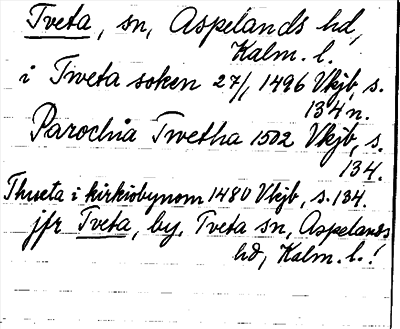 Tveta, sn, Aspelands hd,
Kalm. l.
i Tweta soken 27/1 1496 Vkjb, s.
134 n.
Parochia Twetha 1502 Vkjb, s.
134.
Thweta i kirkiobynom 1480 Vkjb, s. 134.
jfr Tveta, by, Tveta sn, Aspelands
hd, Kalm. l.!